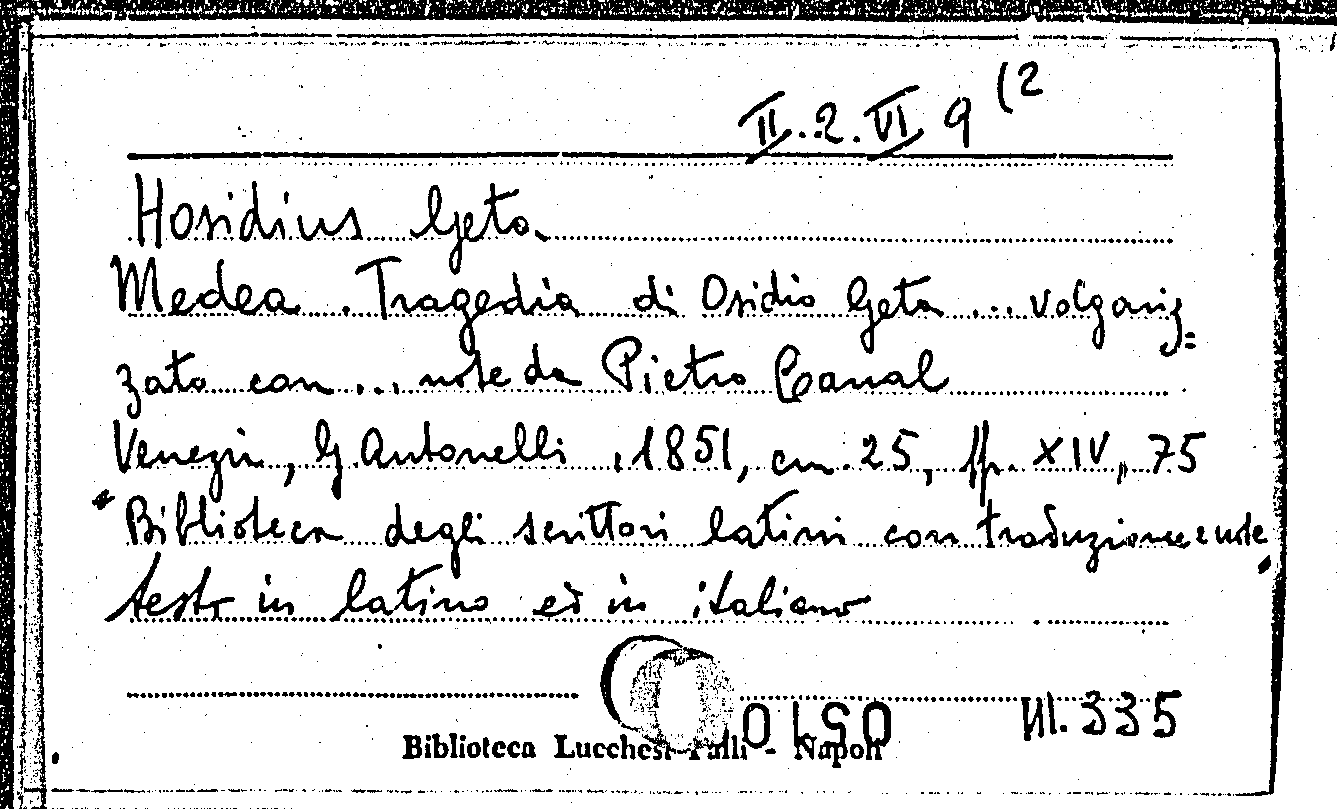 II.2.VI 9 (2
Hosidius Geta
Medea. Tragedia di Osidio Geta ... volgariz=
zata con ... note da Pietro Canal
Venezia, G. Antonelli, 1851, cm. 25, pp. XIV, 75
"Biblioteca degli scrittori latini con traduzione e note"
testo in latino ed in italiano
0510 VI. 335
Biblioteca Lucchesi-Palli - Napoli